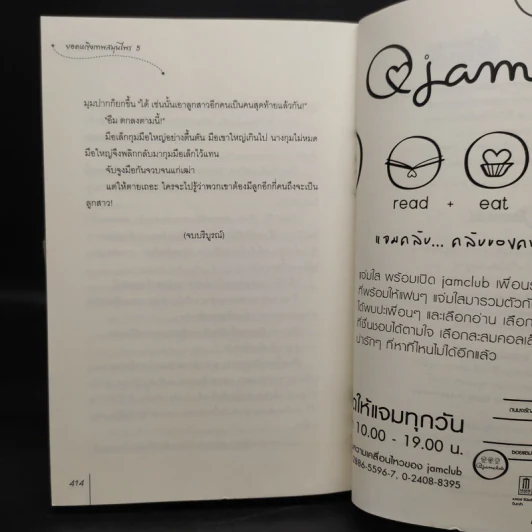 ยอดหญิงเทพสมุนไพร 5
มุมปากก็ยกขึ้น "ได้ เช่นนั้นเอาลูกสาวอีกคนเป็นคนสุดท้ายแล้วกัน!"
"อืม ตกลงตามนี้!"
มือเล็กกุมมือใหญ่อย่างตื้นตัน มือเขาใหญ่เกินไป นางกุมไม่หมด
มือใหญ่จึงพลิกกลับมากุมมือเล็กไว้แทน
จับจูงมือกันจวบจนแก่เฒ่า
แต่ให้ตายเถอะ ใครจะไปรู้ว่าพวกเขาต้องมีลูกอีกกี่คนถึงจะเป็น
ลูกสาว!
(จบบริบูรณ์)
414
@jamc
read + eat
แจมคลับ... คลับของค
แจ่มใส พร้อมเปิด jamclub เพื่อน
ที่พร้อมให้แฟนๆ แจ่มใสมารวมตัวกั
ได้พบปะเพื่อนๆ และเลือกอ่าน เลือก
ที่ชื่นชอบได้ตามใจ เลือกสะสมคอลเล็
น่ารักๆ ที่หาที่ไหนไม่ได้อีกแล้ว
ให้แจมทุกวัน
10.00 - 19.00 น.
ความเคลื่อนไหวของ jamclub
2886-5596-7, 0-2408-8395
@jamclub